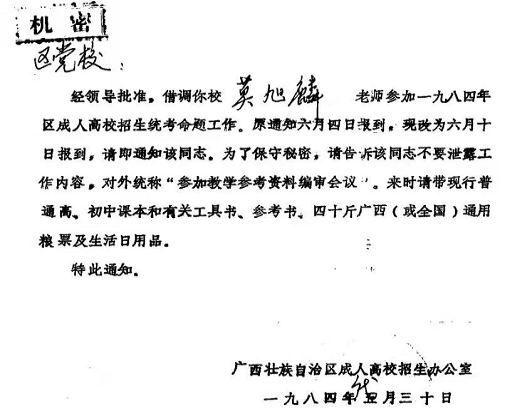 机密
区党校：
经领导批准，借调你校 莫旭麟 老师参加一九八四年
区成人高校招生统考命题工作。原通知六月四日报到，现改为六月十
日报到，请即通知该同志。为了保守秘密，请告诉该同志不要泄露工
作内容，对外统称“参加教学参考资料编审会议”。来时请带现行普
通高、初中课本和有关工具书、参考书、四十斤广西（或全国）通用
粮票及生活日用品。
特此通知。
广西壮族自治区成人高校招生办公室
一九八四年五月三十日